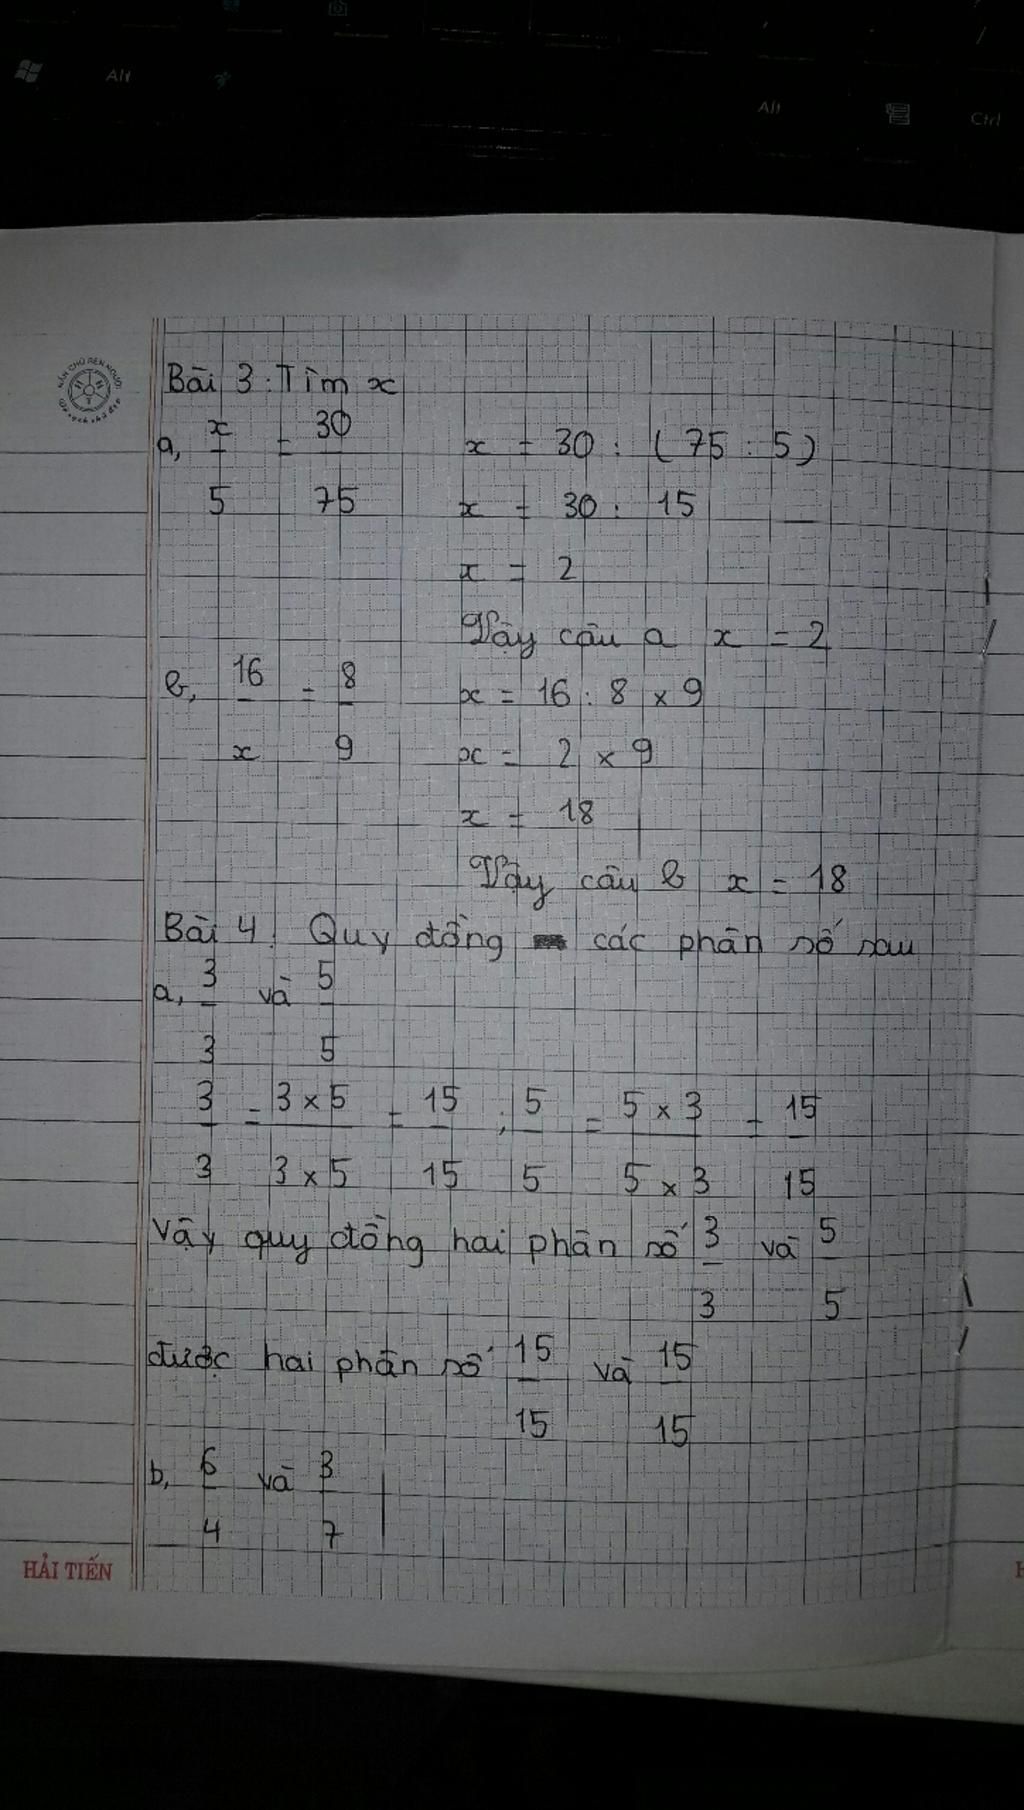 Alt
Alt
Ctrl
Bài 3: Tìm x
a, x/5 = 30/75 x = 30 : (75 : 5)
x = 30 : 15
x = 2
Vậy câu a x = 2
b, 16/x = 8/9 x = 16 : 8 × 9
x = 2 × 9
x = 18
Vậy câu b x = 18
Bài 4: Quy đồng các phân số sau
a, 3/3 và 5/5
3/3 = 3 × 5/3 × 5 = 15/15 ; 5/5 = 5 × 3/5 × 3 = 15/15
Vậy quy đồng hai phân số 3/3 và 5/5
được hai phân số 15/15 và 15/15
b, 6/4 và 3/7
HẢI TIẾN